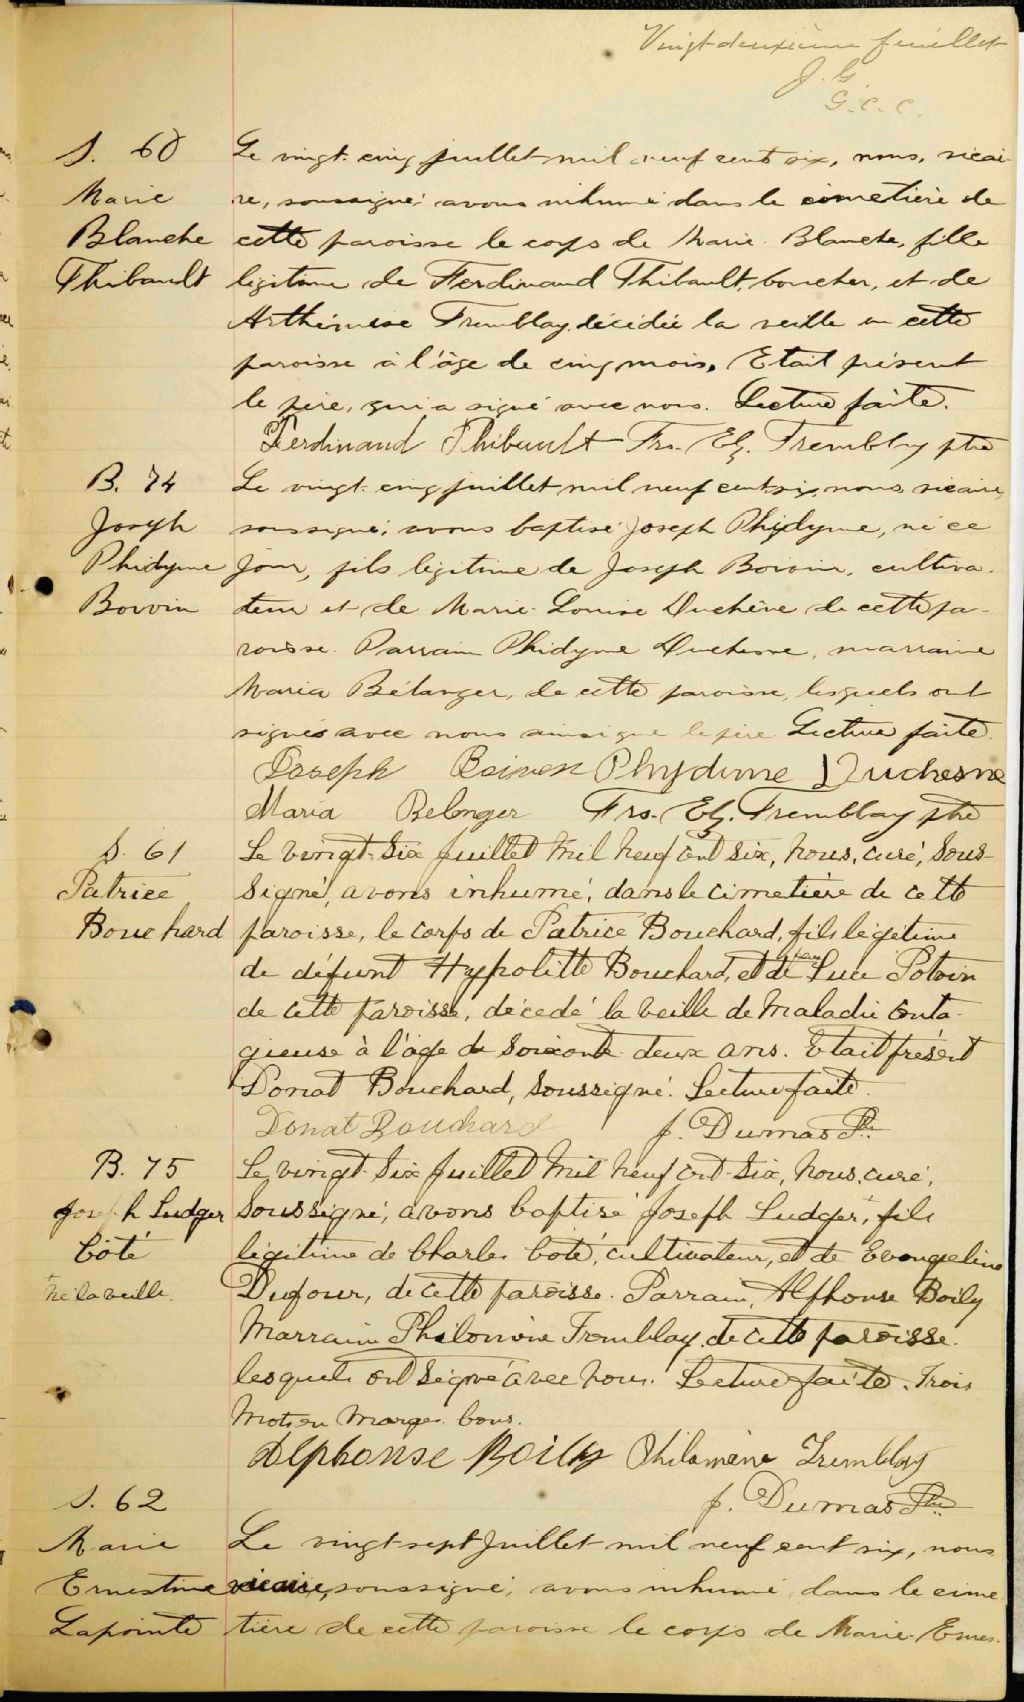 Vingt-deuxième feuillet
J. G.
G. C. C.
S. 60
Marie
Blanche
Thibault
Le vingt-cinq juillet mil neuf cent six, nous, vicai-
re, soussigné, avons inhumé dans le cimetière de
cette paroisse le corps de Marie-Blanche, fille
légitime de Ferdinand Thibault, boucher, et de
Arthémise Tremblay, décédée la veille en cette
paroisse à l'âge de cinq mois. Etait présent
le père, qui a signé avec nous. Lecture faite.
Ferdinand Thibault Frs. Elz. Tremblay ptre
B. 74
Joseph
Phidyme
Boivin
Le vingt-cinq juillet mil neuf cent six, nous, vicaire,
soussigné, avons baptisé Joseph Phidyme, né ce
jour, fils légitime de Joseph Boivin, cultiva-
teur et de Marie-Louise Duchêne de cette pa-
roisse. Parrain Phidyme Duchesne, marraine
Maria Bélanger, de cette paroisse, lesquels ont
signés avec nous ainsi que le père. Lecture faite.
Joseph Boivin Phydime Duchesne
Maria Belanger Frs. Elz. Tremblay ptre
S. 61
Patrice
Bouchard
Le vingt-six juillet mil neuf cent six, nous, curé, sous-
signé, avons inhumé, dans le cimetière de cette
paroisse, le corps de Patrice Bouchard, fils légitime
de défunt Hyppolitte Bouchard, et de Luce Potvin
de cette paroisse, décédé la veille de maladie conta-
gieuse à l'âge de soixante-deux ans. Etait présent
Donat Bouchard, soussigné. Lecture faite.
Donat Bouchard J. Dumas Ptre
B. 75
Joseph Ludger
Côté
né la veille.
Le vingt-six juillet mil neuf cent-six, nous, curé,
soussigné, avons baptisé Joseph Ludger, fils
légitime de Charles Côté, cultivateur, et de Evangeline
Dufour, de cette paroisse. Parrain, Alphonse Boily
Marraine Philomène Tremblay, de cette paroisse.
lesquels ont signé avec nous. Lecture faite. Trois
mots en marge bons.
Alphonse Boily Philomène Tremblay
J. Dumas Ptre
S. 62
Marie
Ernestine
Lapointe
Le vingt-sept juillet mil neuf cent six, nous
vicaire, soussigné, avons inhumé dans le cime-
tière de cette paroisse le corps de Marie-Ernes-